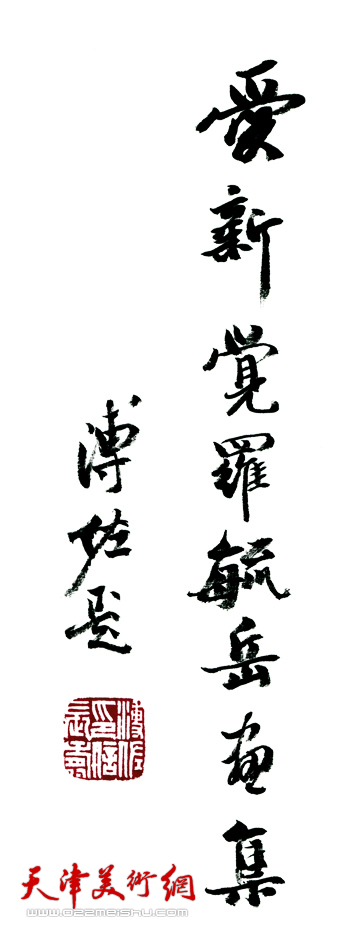 愛新覺羅毓岳画集
溥佐题
天津美術網
www.022meishu.com